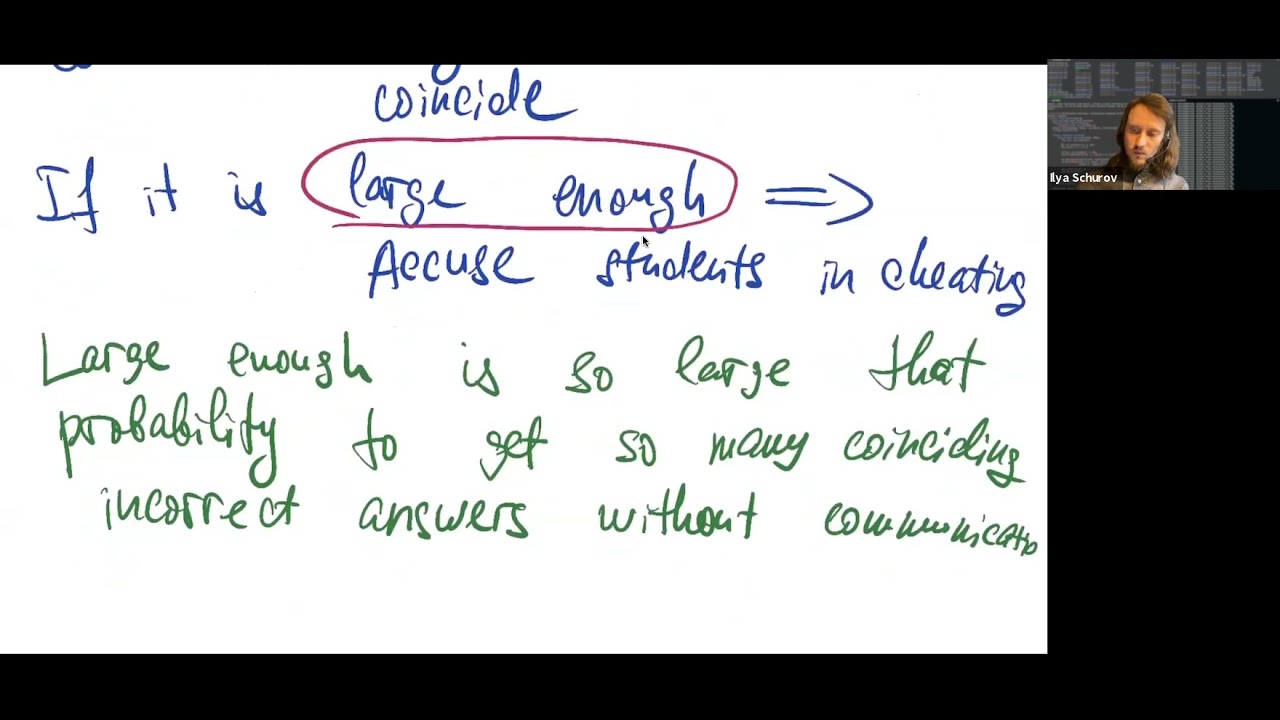 coincide
If it is large enough =>
Accuse students in cheating
Large enough is so large that
probability to get so many coinciding
incorrect answers without communicatio
Ilya Schurov